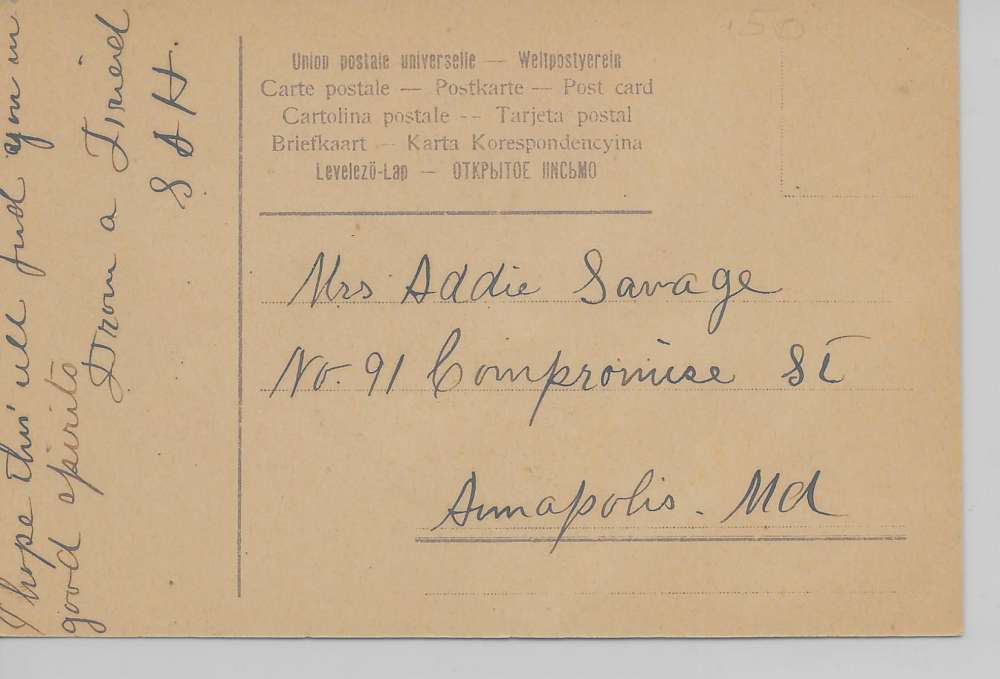 I hope this 'ill find you in
good spirits
From a Friend
S A H.
.50
Union postale universelle — Weltpostverein
Carte postale — Postkarte — Post card
Cartolina postale -- Tarjeta postal
Briefkaart — Karta Korespondencyina
Levelező-Lap — ОТКРЫТОЕ ПИСЬМО
Mrs Addie Savage
No. 91 Compromise St
Annapolis. Md